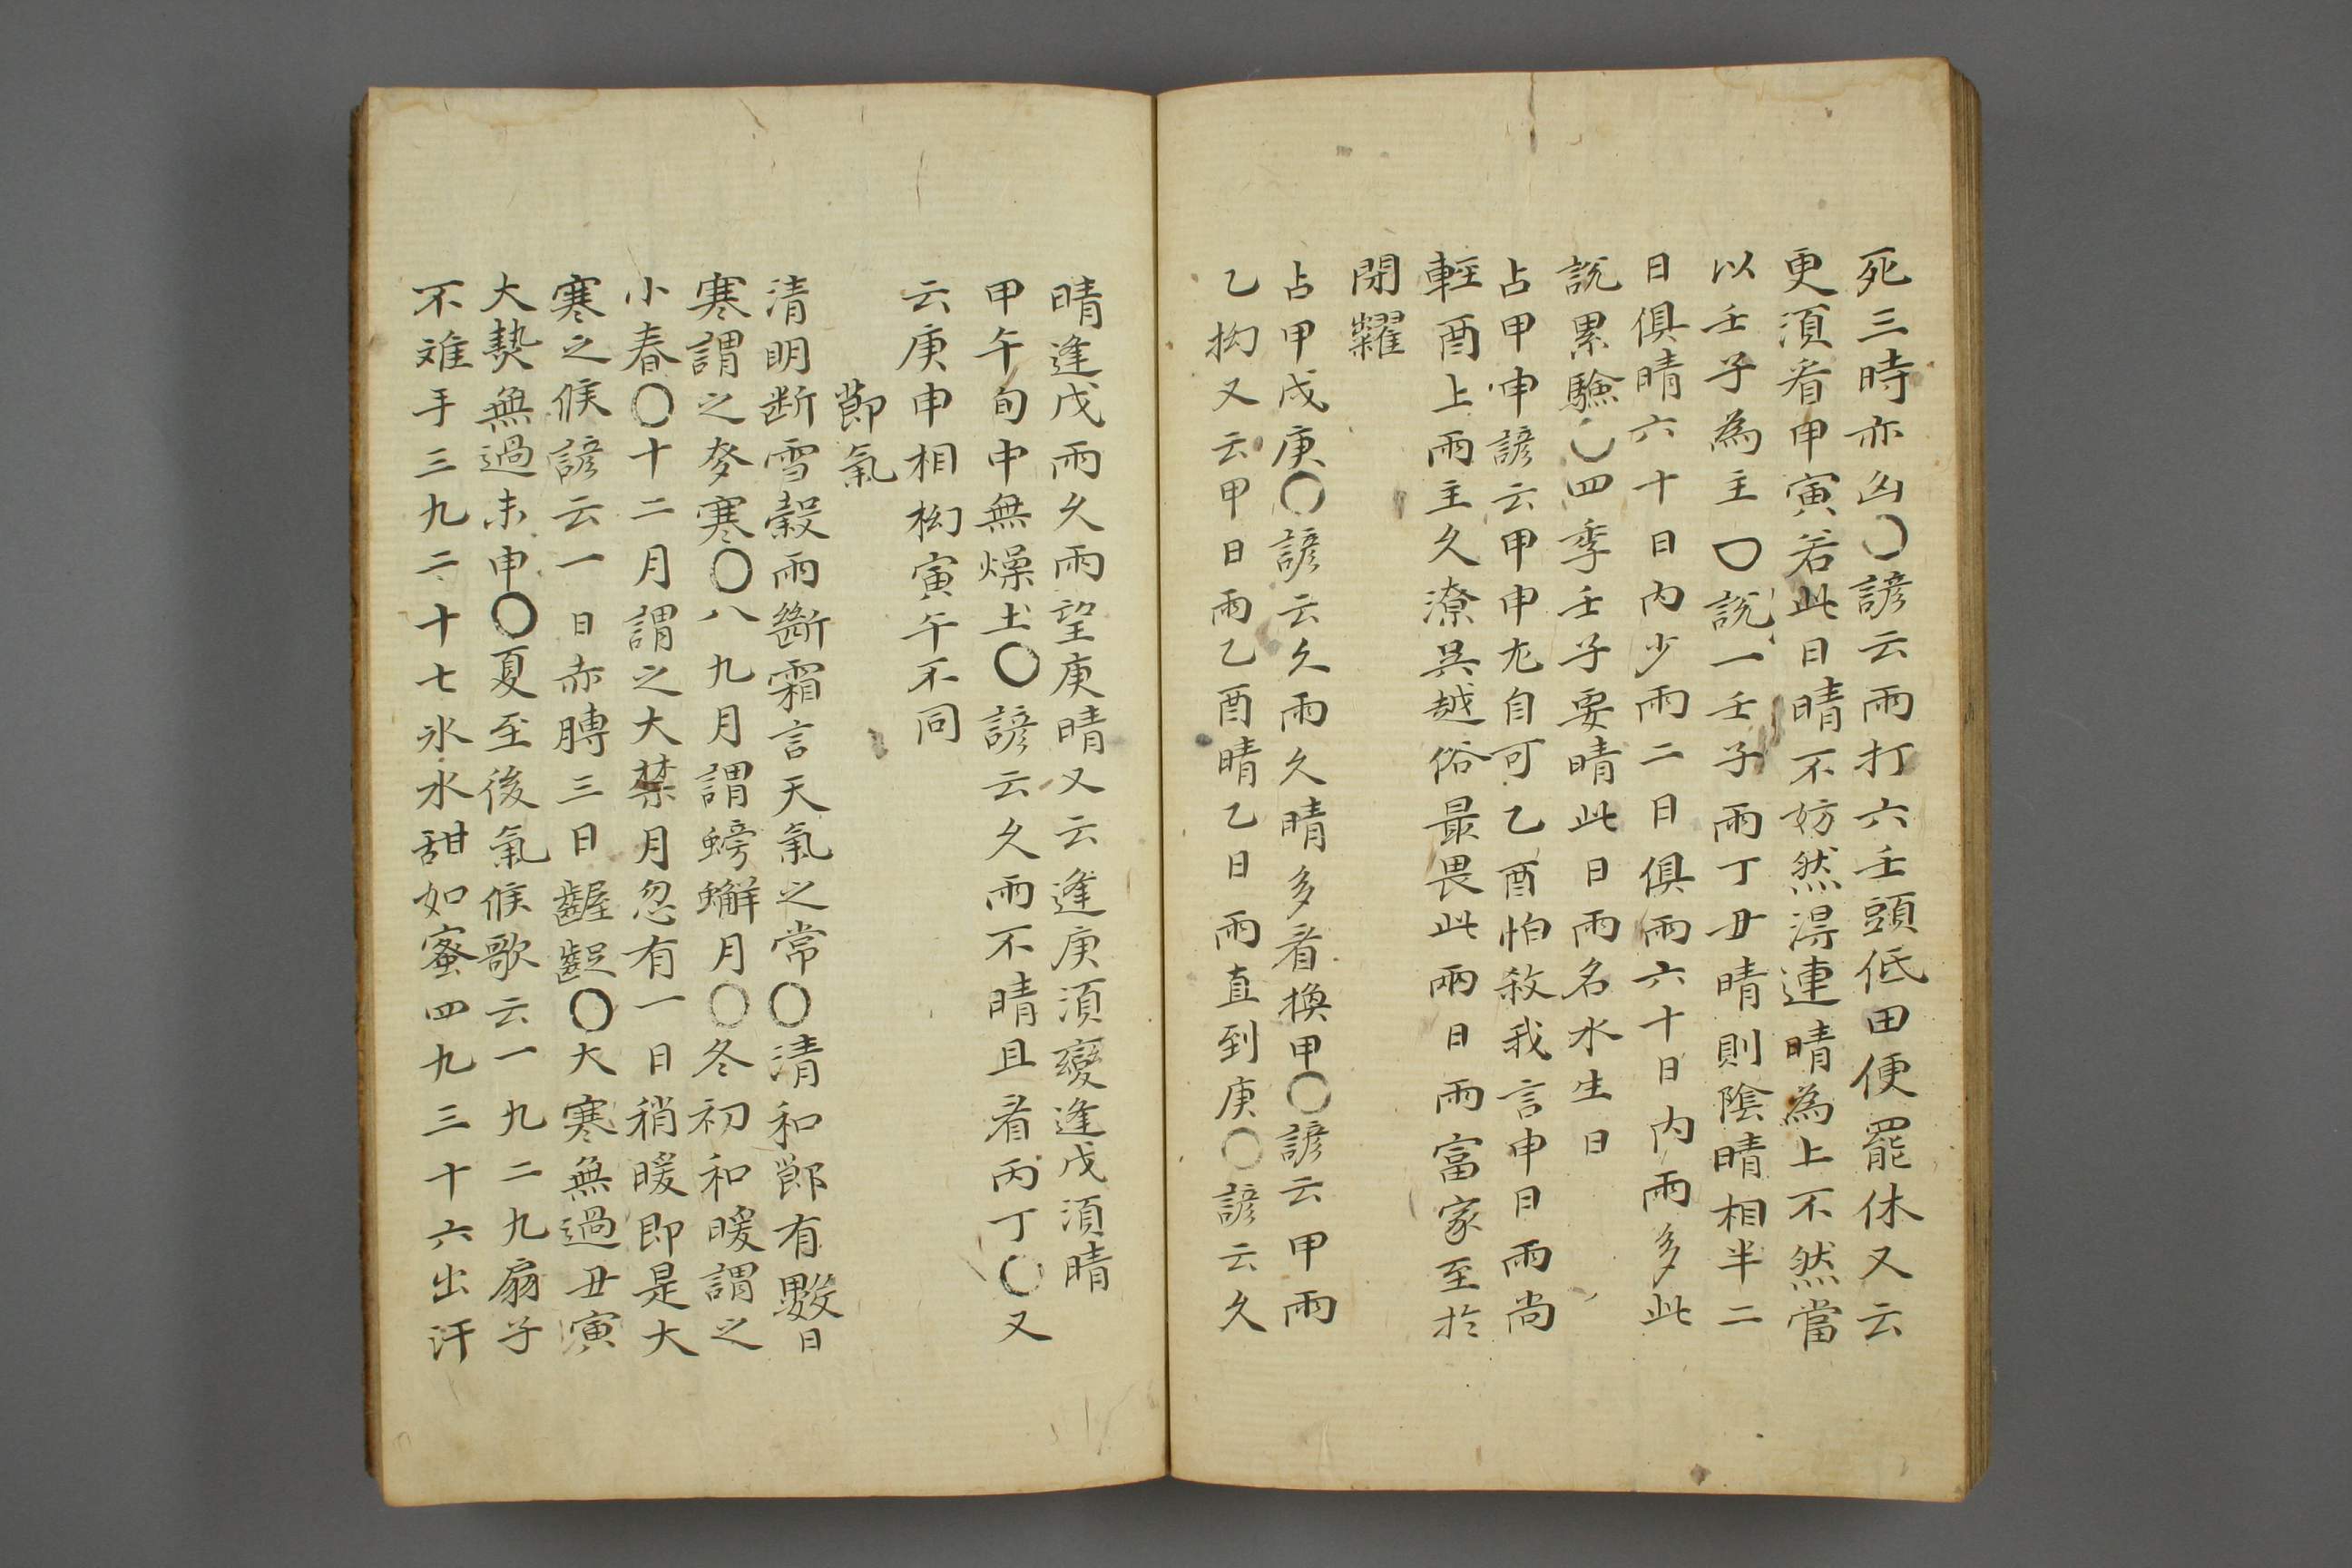 死三時亦凶〇諺云雨打六壬頭低田便罷休又云
更須看甲寅若此日晴不妨然淂連晴為上不然當
以壬子為主〇說一壬子雨丁丑晴則陰晴相半二
日俱晴六十日内少雨二日俱雨六十日内雨多此
說累驗〇四季壬子要晴此日雨名水生日
占甲申諺云甲申尤自可乙酉怕殺我言申日雨尚
輕酉上雨主久潦吳越俗最畏此兩日雨富家至於
閉糶
占甲戌庚〇諺云久雨久晴多看換甲〇諺云甲雨
乙抝又云甲日雨乙酉晴乙日雨直到庚〇諺云久
晴逢戊雨久雨望庚晴又云逢庚須變逢戊須晴
甲午旬中無燥土〇諺云久雨不晴且看丙丁〇又
云庚申相抝寅午不同
節氣
清明断雪穀雨斷霜言天氣之常〇清和節有數日
寒謂之麥寒〇八九月謂螃蠏月〇冬初和暖謂之
小春〇十二月謂之大禁月忽有一日稍暖即是大
寒之候諺云一日赤膊三日齷齪〇大寒無過丑寅
大熱無過未申〇夏至後氣候歌云一九二九扇子
不难手三九二十七氷水甜如蜜四九三十六出汗